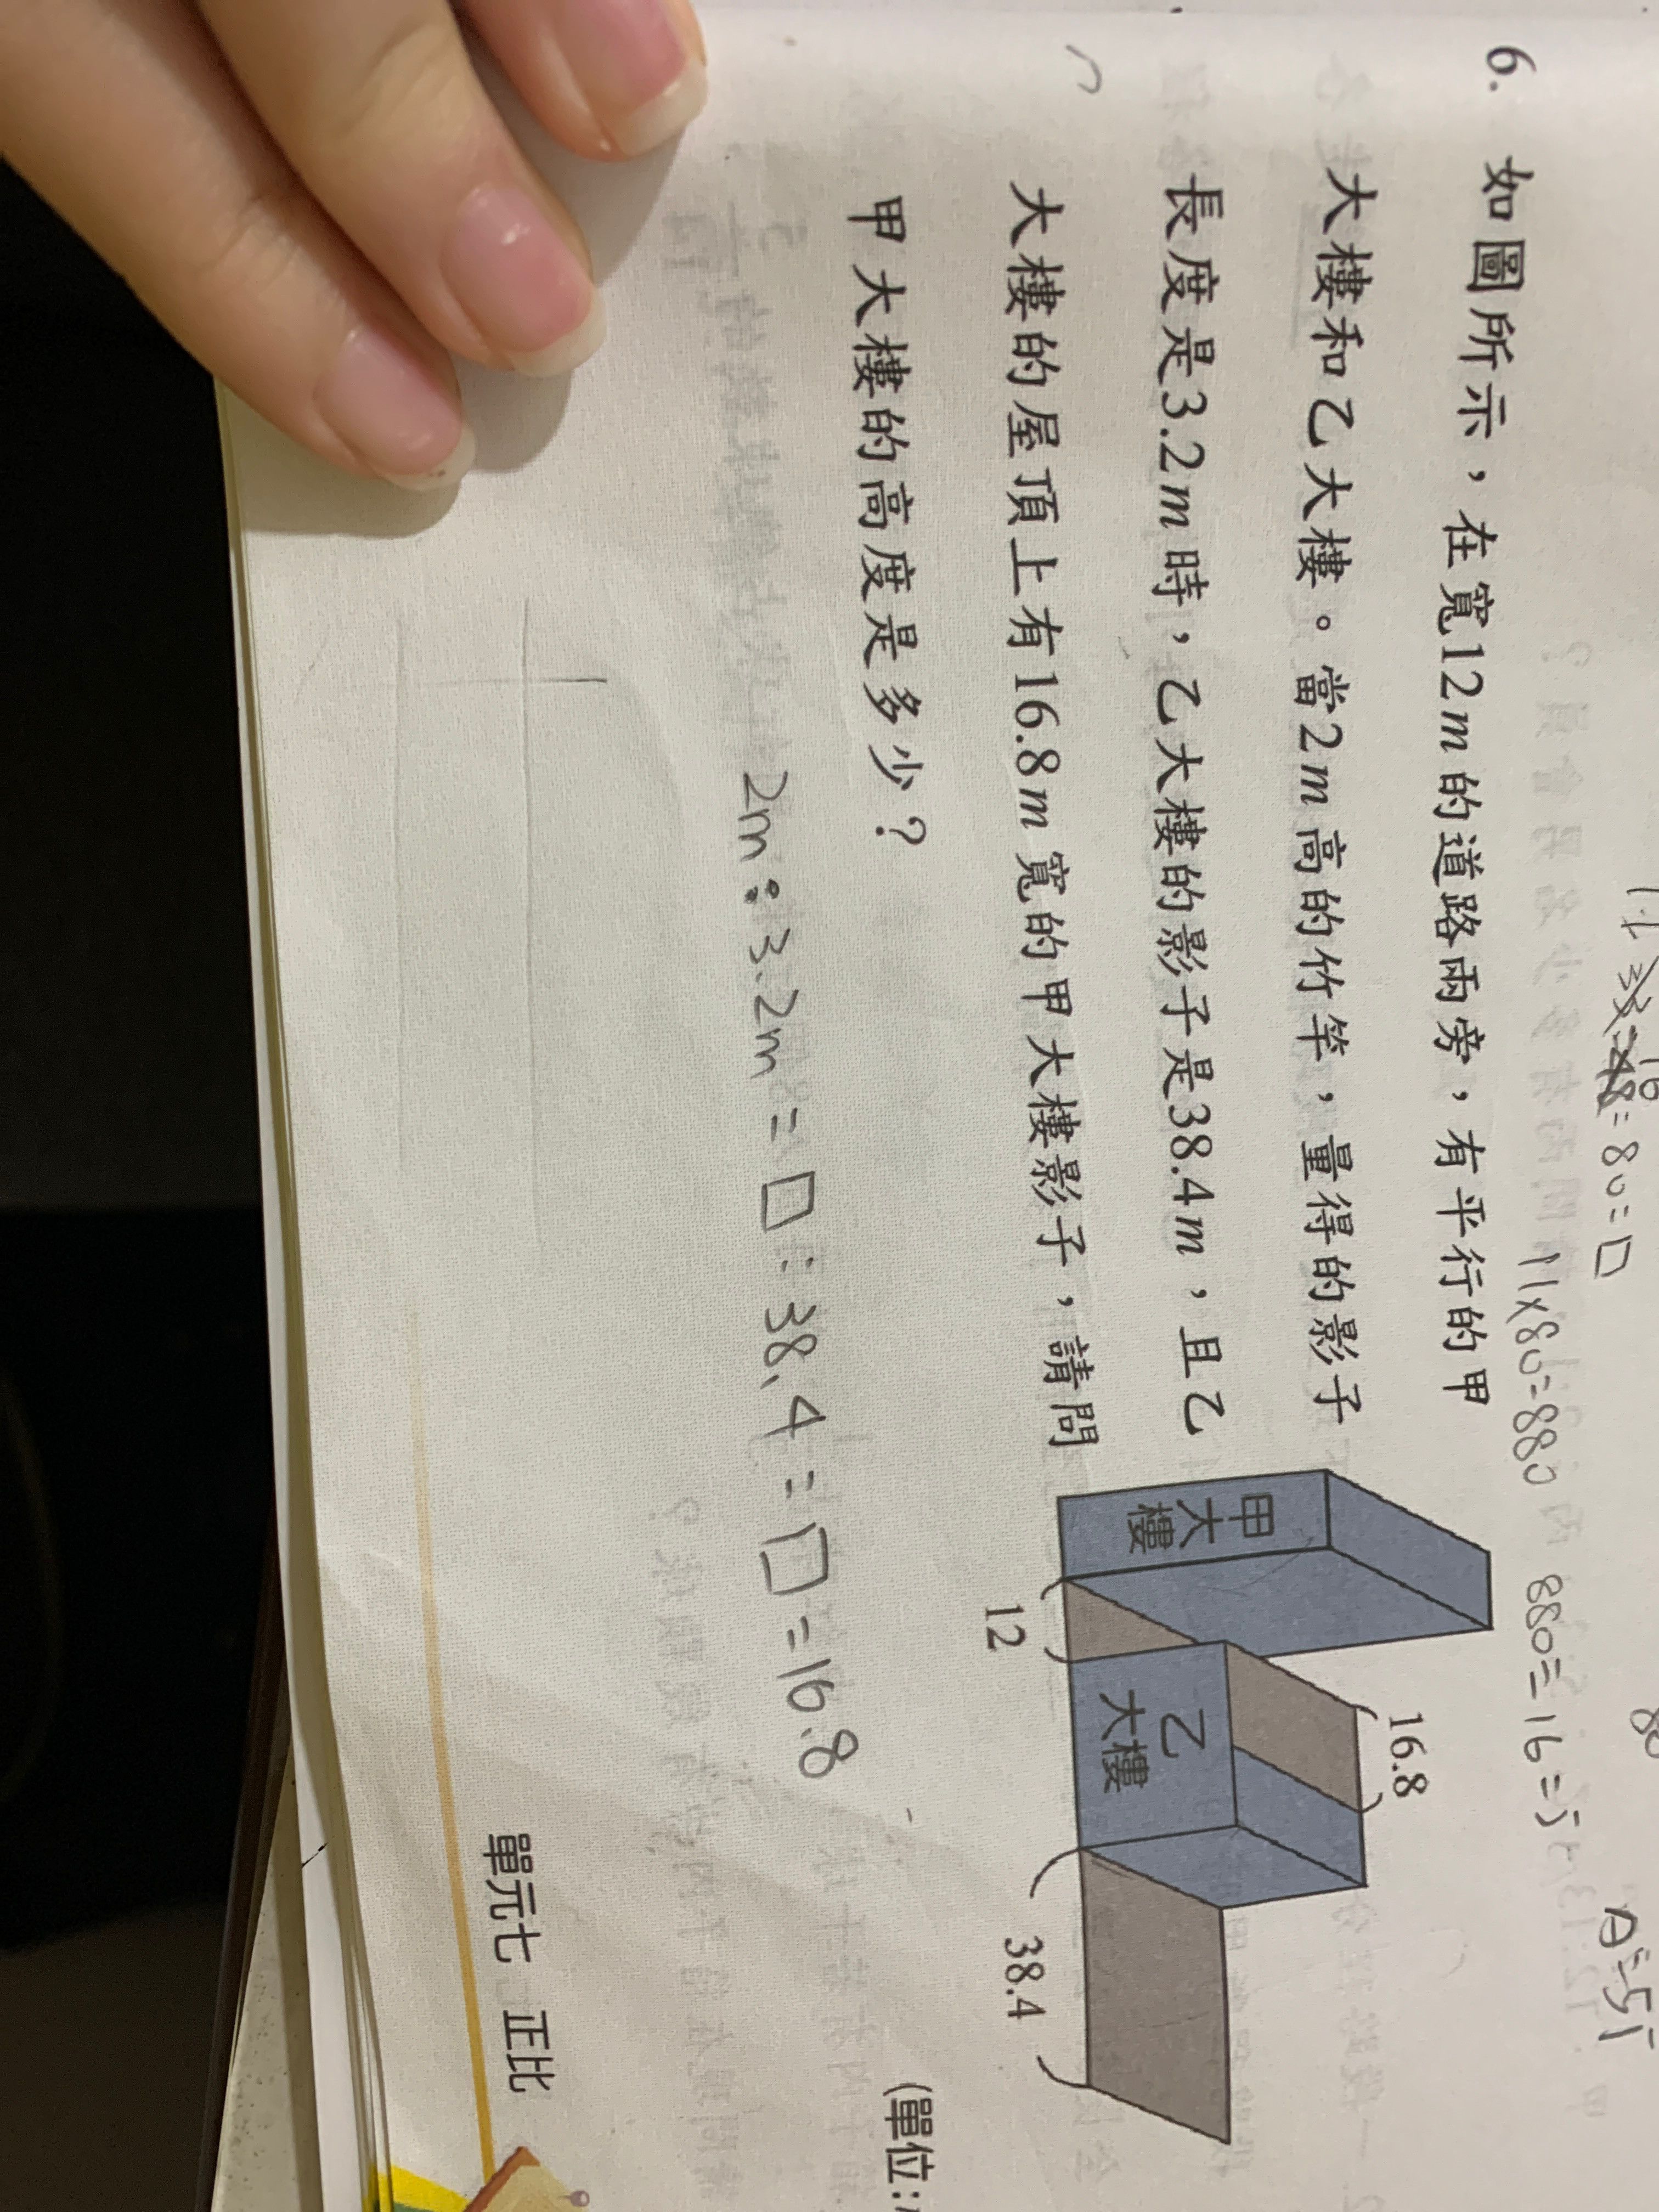 6. 如圖所示，在寬12m的道路兩旁，有平行的甲
大樓和乙大樓。當2m高的竹竿，量得的影子
長度是3.2m時，乙大樓的影子是38.4m，且乙
大樓的屋頂上有16.8m寬的甲大樓影子，請問
甲大樓的高度是多少？
2m：3.2m=□：38.4=□=16.8
甲大樓
乙大樓
16.8
12
38.4
(單位:
單元七 正比
=80=□
11×80=880
880=16=5